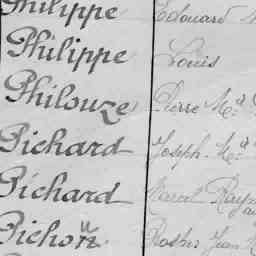 Philippe Edouard
Philippe Louis
Philouze Pierre M.
Pichard Joseph M.
Pichard Marcel Raym
Pichon Jean